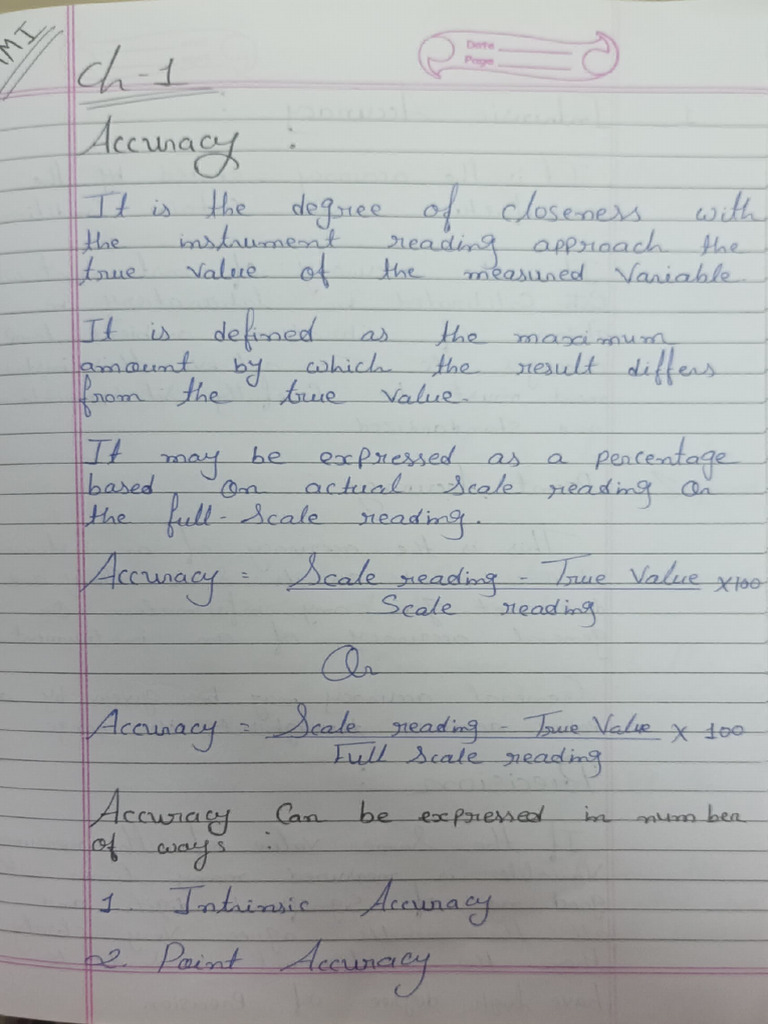 MI
Date
Page
Ch-1
Accuracy :
It is the degree of closeness with
the instrument reading approach the
true value of the measured Variable
It is defined as the maximum
amount by which the result differs
from the true value.
It may be expressed as a percentage
based on actual scale reading or
the full-scale reading.
Accuracy = Scale reading - True Value x100
Scale reading
Or
Accuracy = Scale reading - True Value x 100
Full Scale reading
Accuracy Can be expressed in number
of ways :
1 Intrinsic Accuracy
2. Point Accuracy